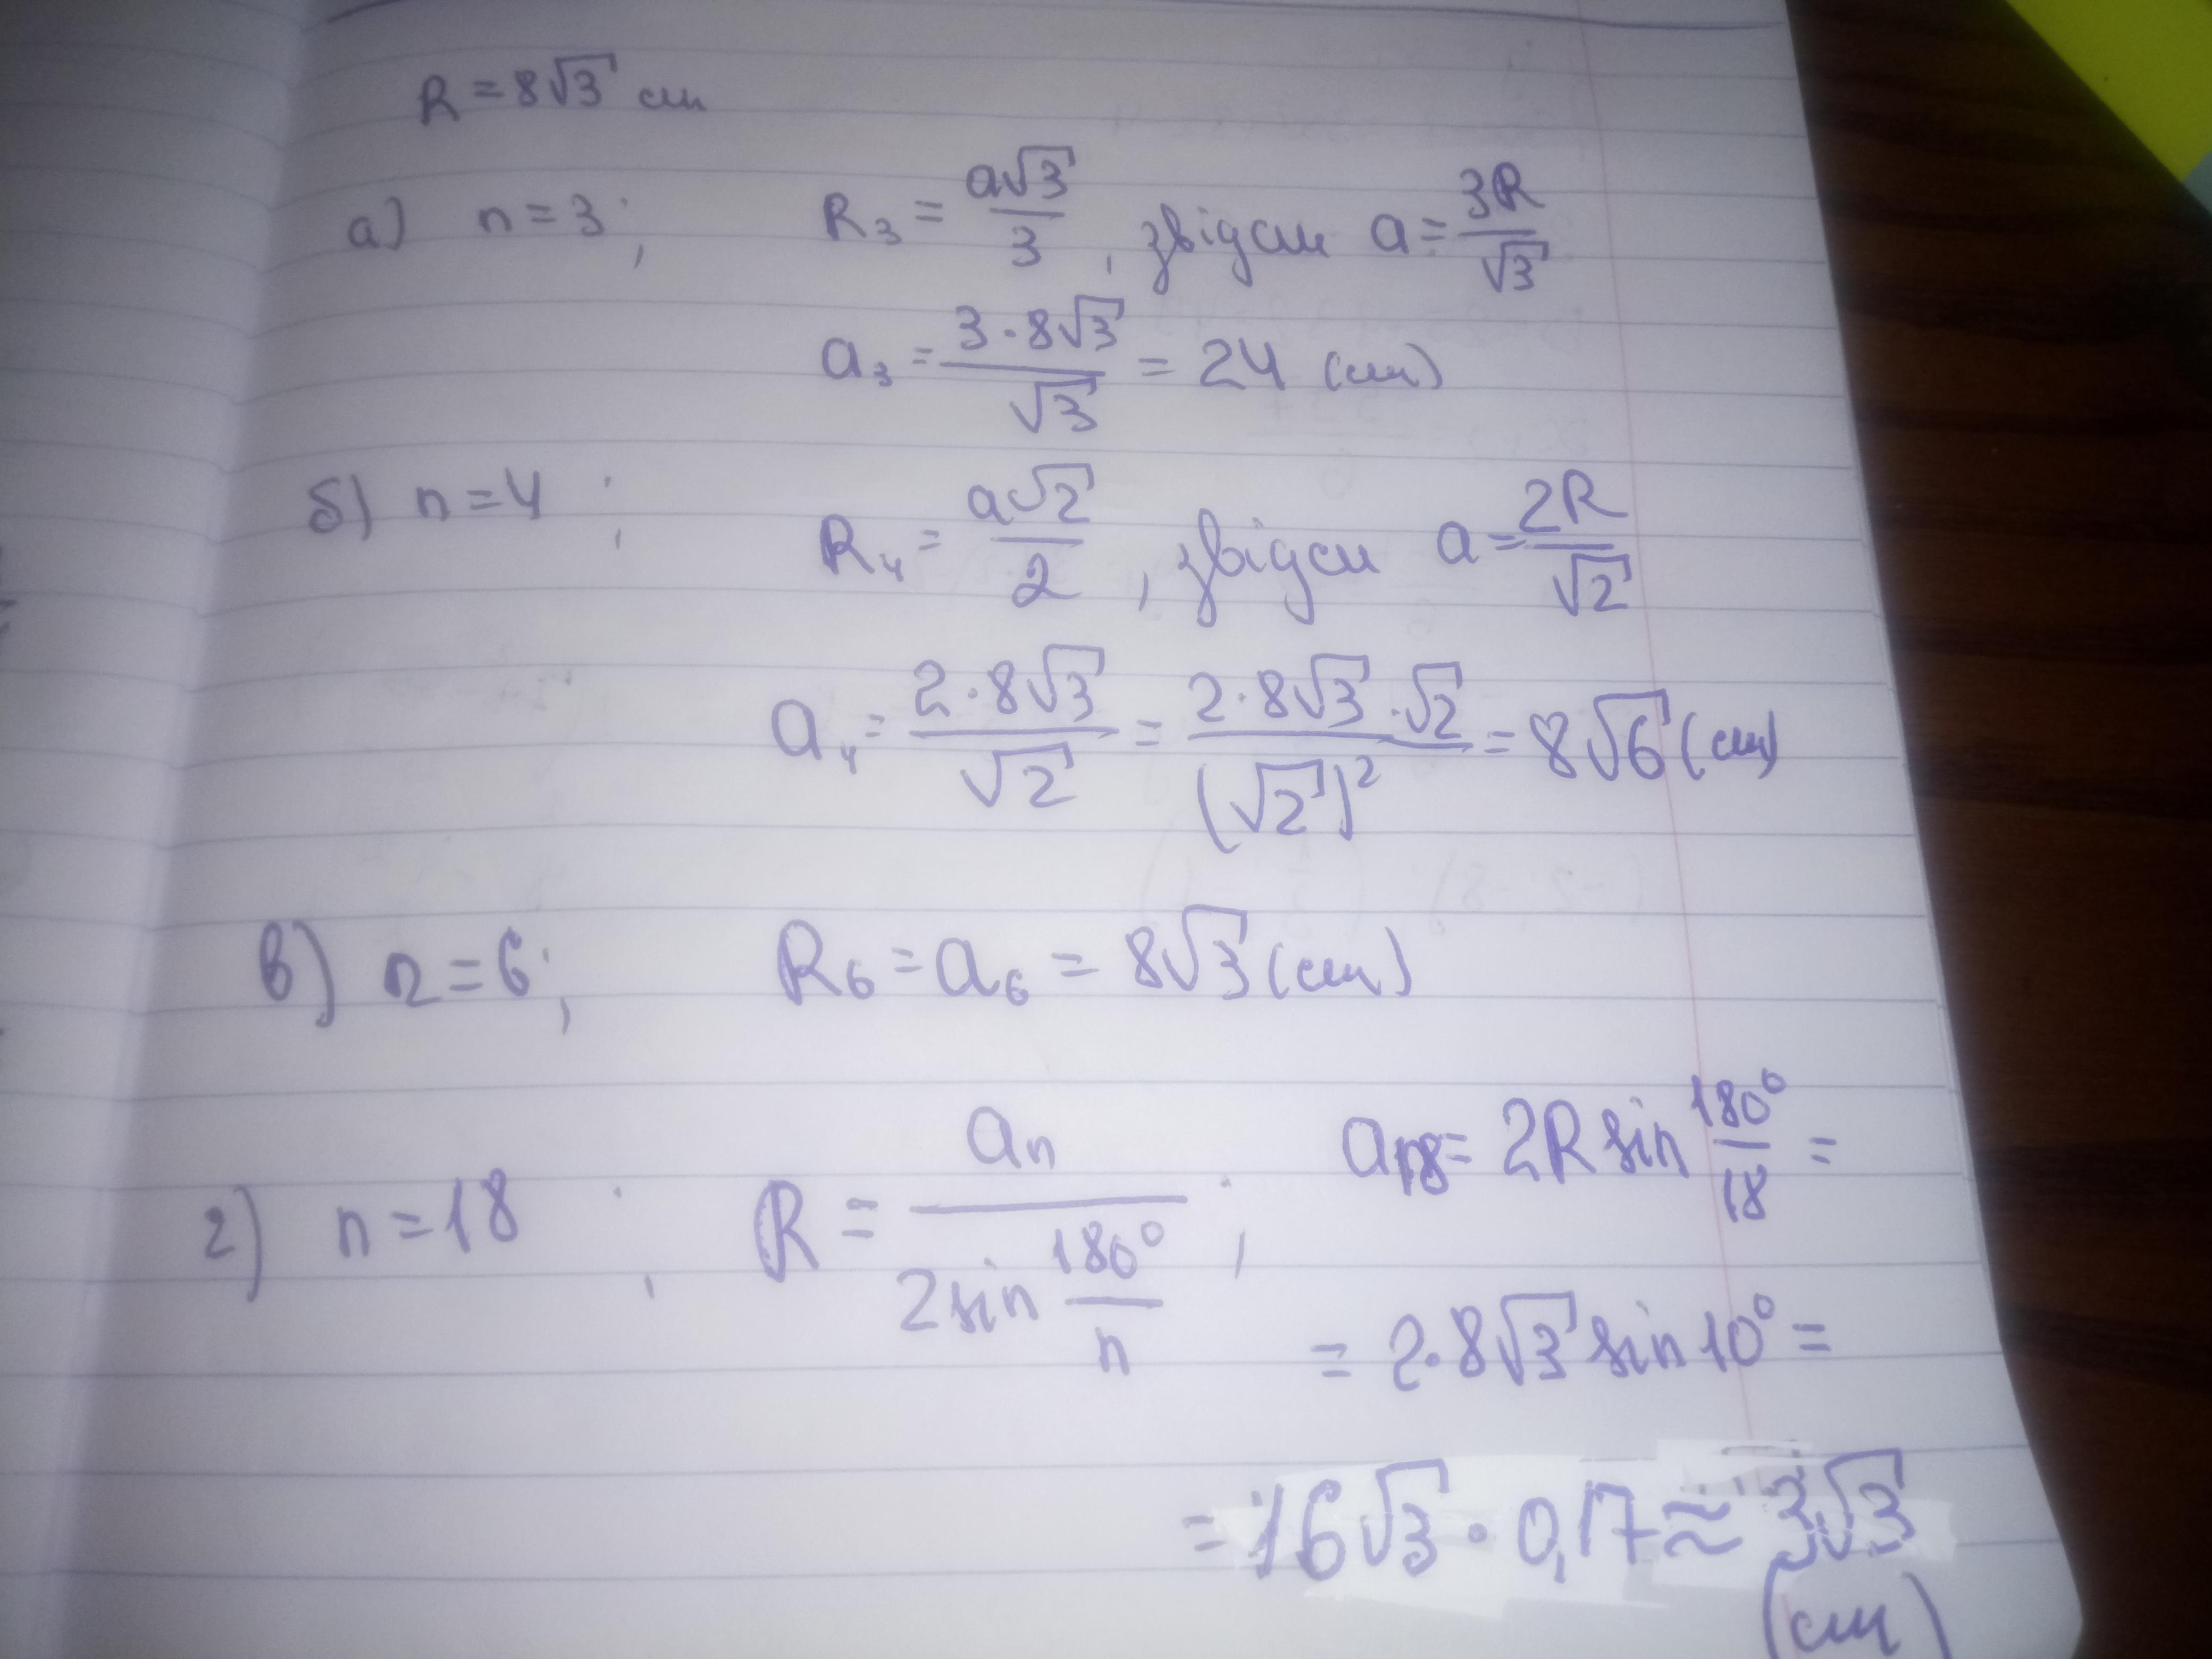 R = 8√3 см
а) n = 3; R₃ = a√3/3, звідси a = 3R/√3
a₃ = 3·8√3/√3 = 24 (см)
б) n = 4; R₄ = a√2/2, звідси a = 2R/√2
a₄ = 2·8√3/√2 = 2·8√3·√2/(√2)² = 8√6 (см)
в) n = 6; R₆ = a₆ = 8√3 (см)
г) n = 18; R = aₙ/(2sin 180°/n); a₁₈ = 2R sin 180°/18 =
= 2·8√3 sin 10° =
= 16√3 · 0,17 ≈ 3√3
(см)